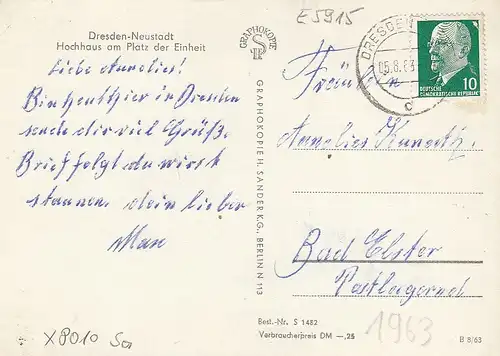 Dresden-Neustadt
Hochhaus am Platz der Einheit
Liebe Annelies!
Bin jetzt hier in Dresden
sende dir viel Grüße.
Brief folgt du wirst
staunen. dein lieber
Max
X 8010 Son
GRAPHOKOPIE
GRAPHOKOPIE H. SANDER K.G., BERLIN N 113
E 5915
DRESDEN
05.8.63
c
DEUTSCHE
DEMOKRATISCHE REPUBLIK
10
Fräulein
Annelies
Bad Elster
Postlagernd
Best.-Nr. S 1482
Verbraucherpreis DM —,25
1963
B 8/63